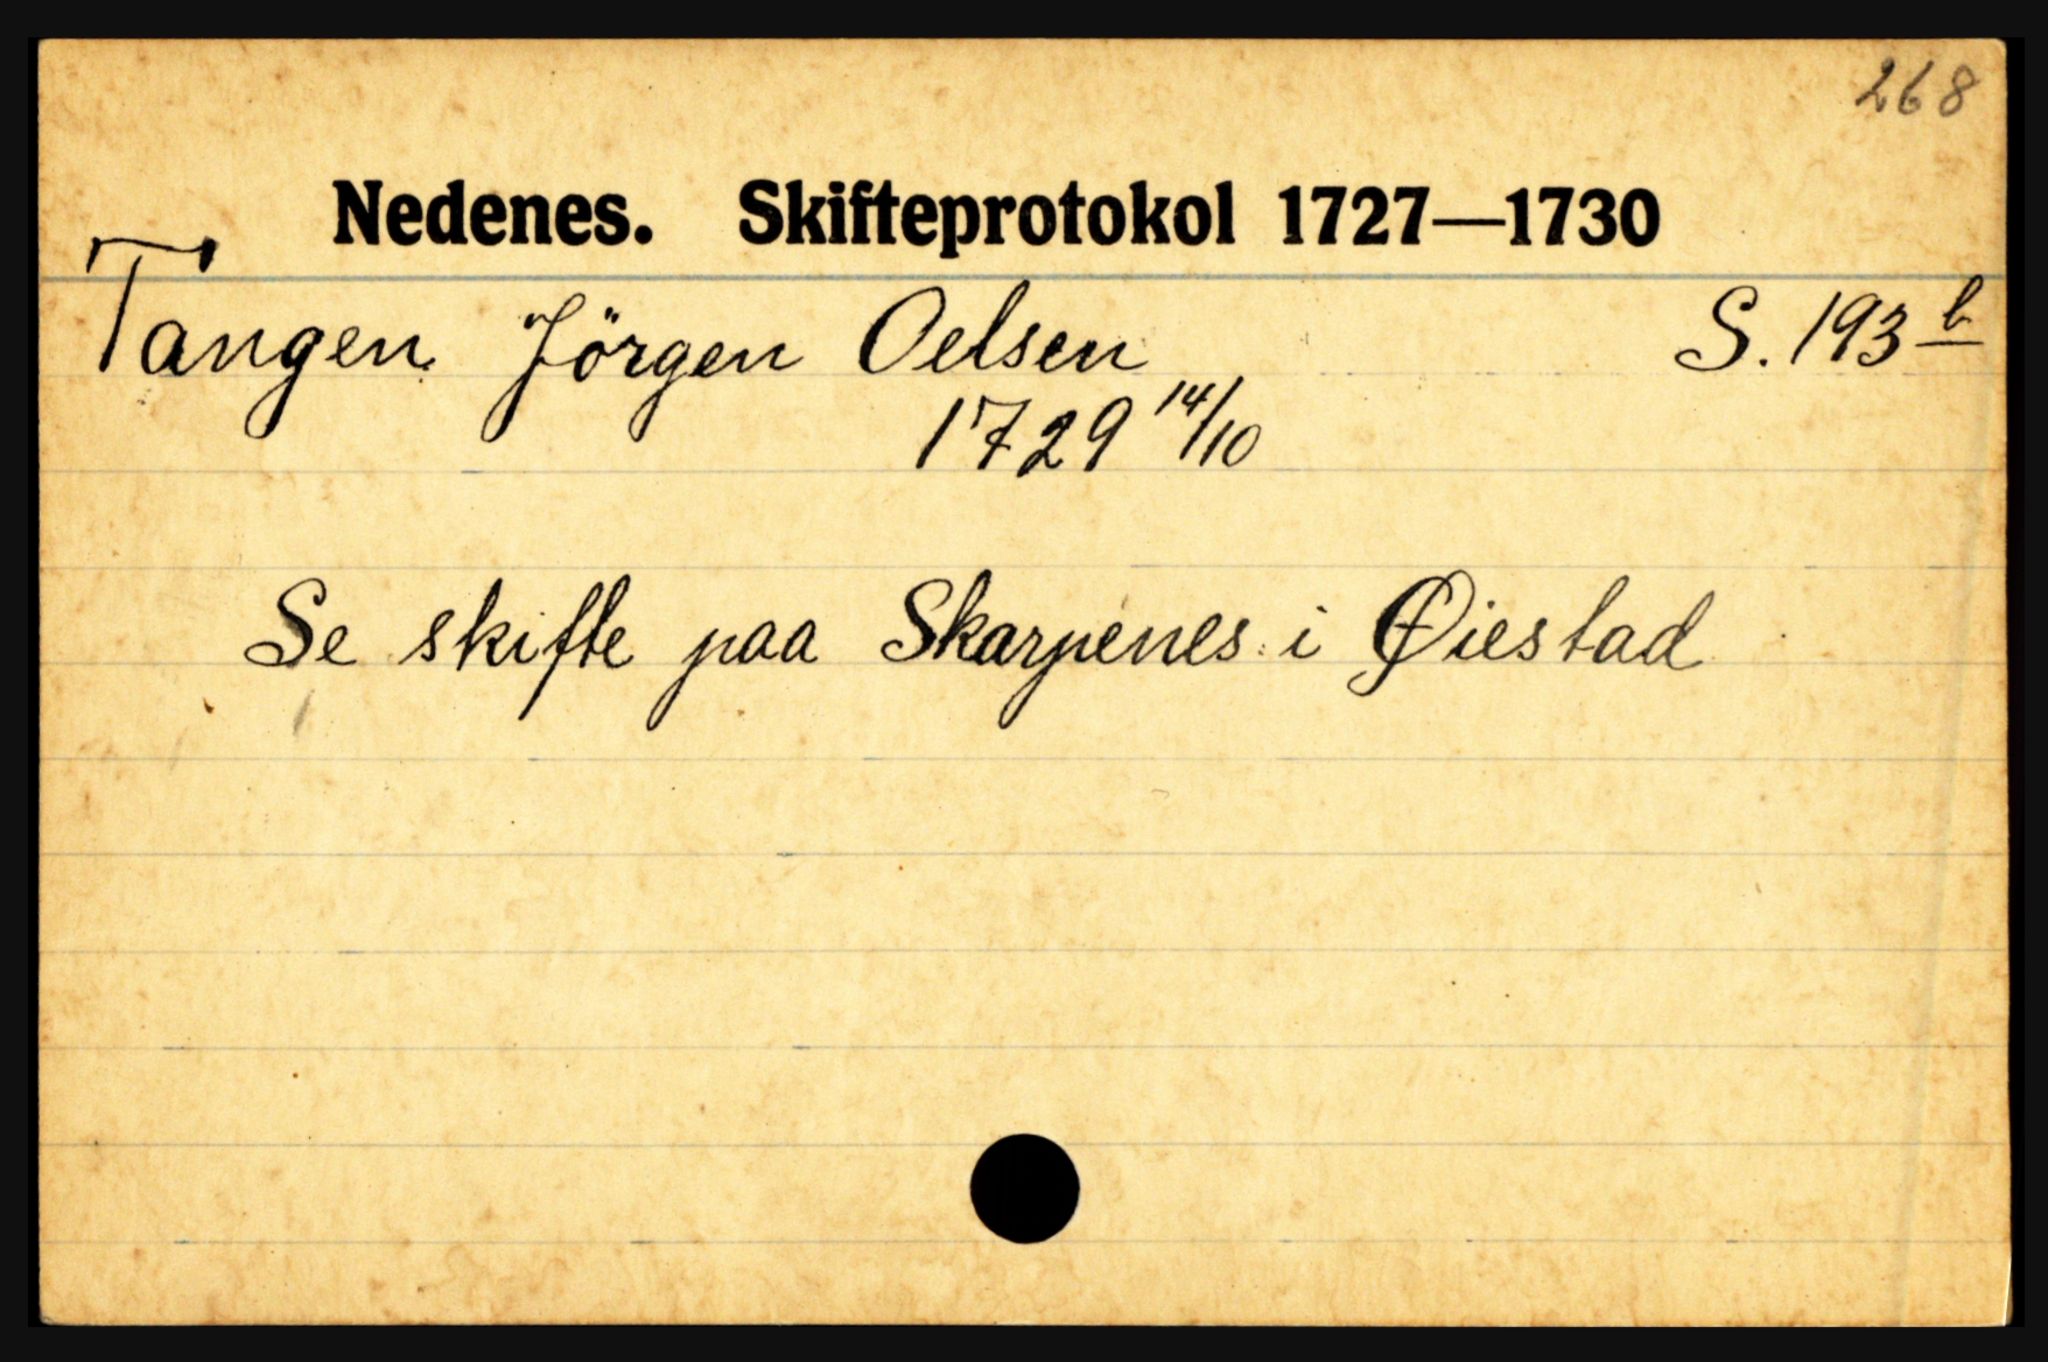 268
Nedenes. Skifteprotokol 1727—1730
Tangen Jörgen Oelsen S. 193 b
1729 14/10
Se skifte paa Skarpenes i Øiestad